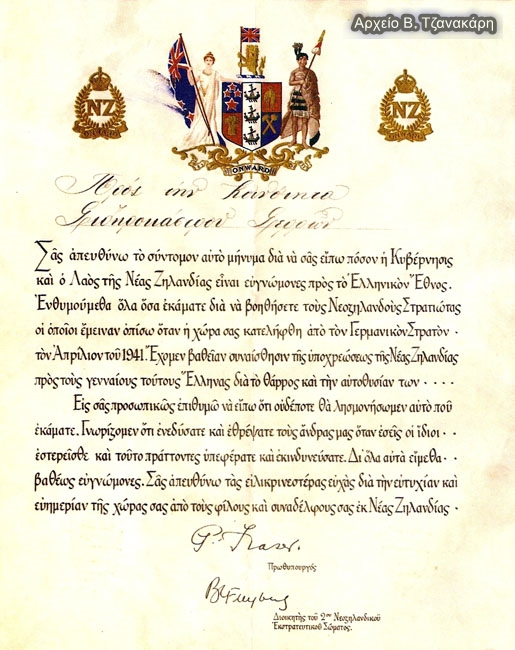 Αρχείο Β. Τζανακάρη
NZ
NZ
ONWARD
ONWARD
ONWARD
Πρός την Κοινότητα
Σιδηροκάστρου Σερρών
Σᾶς ἀπευθύνω τὸ σύντομον αὐτὸ μήνυμα διὰ νὰ σᾶς εἴπω πόσον ἡ Κυβέρνησις
καὶ ὁ Λαὸς τῆς Νέας Ζηλανδίας εἶναι εὐγνώμονες πρὸς τὸ Ἑλληνικὸν Ἔθνος.
Ἐνθυμούμεθα ὅλα ὅσα ἐκάματε διὰ νὰ βοηθήσετε τοὺς Νεοζηλανδοὺς Στρατιώτας
οἱ ὁποῖοι ἔμειναν ὀπίσω ὅταν ἡ χώρα σας κατελήφθη ἀπὸ τὸν Γερμανικὸν Στρατὸν ·
τὸν Ἀπρίλιον τοῦ 1941. Ἔχομεν βαθεῖαν συναίσθησιν τῆς ὑποχρεώσεως τῆς Νέας Ζηλανδίας
πρὸς τοὺς γενναίους τούτους Ἕλληνας διὰ τὸ θάρρος καὶ τὴν αὐτοθυσίαν των · · · ·
Εἰς σᾶς προσωπικῶς ἐπιθυμῶ νὰ εἴπω ὅτι οὐδέποτε θὰ λησμονήσωμεν αὐτὸ ποῦ
ἐκάματε. Γνωρίζομεν ὅτι ἐνεδύσατε καὶ ἐθρέψατε τοὺς ἄνδρας μας ὅταν ἐσεῖς οἱ ἴδιοι · ·
ἐστερεῖσθε καὶ τοῦτο πράττοντες ὑπεφέρατε καὶ ἐκινδυνεύσατε. Δι' ὅλα αὐτὰ εἴμεθα · ·
βαθέως εὐγνώμονες. Σᾶς ἀπευθύνω τὰς εἰλικρινεστέρας εὐχὰς διὰ τὴν εὐτυχίαν καὶ
εὐημερίαν τῆς χώρας σας ἀπὸ τοὺς φίλους καὶ συναδέλφους σας ἐκ Νέας Ζηλανδίας ·
P. Fraser.
Πρωθυπουργός
B C Freyberg
Διοικητὴς τοῦ 2ου Νεοζηλανδικοῦ
Ἐκστρατευτικοῦ Σώματος.